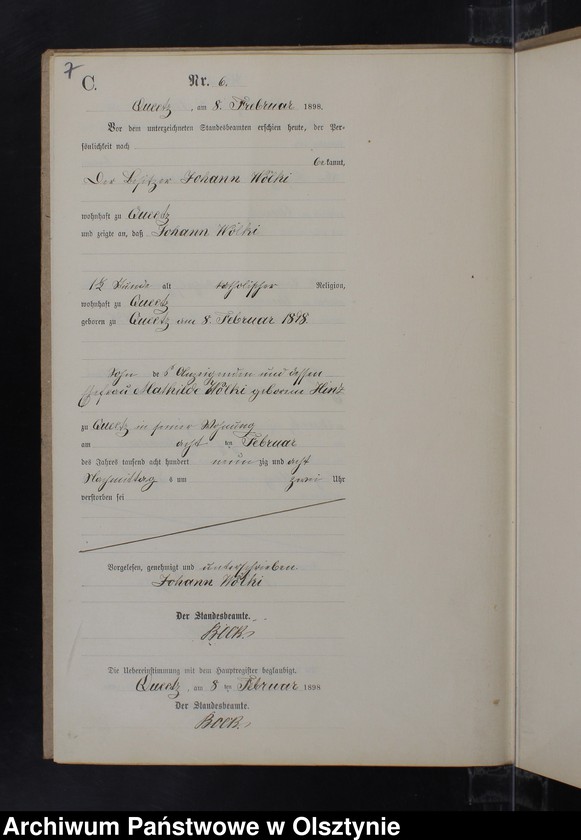 7
C.
Nr. 6.
Queetz, am 8. Februar 1898.
Vor dem unterzeichneten Standesbeamten erschien heute, der Per-
sönlichkeit nach
bekannt,
Der Besitzer Johann Wölki
wohnhaft zu Queetz
und zeigte an, daß Johann Wölki
1/2 Stunde alt katholischer Religion,
wohnhaft zu Queetz
geboren zu Queetz am 8. Februar 1898
Sohn des Anzeigenden und dessen
Ehefrau Mathilde Wölki geborene Hinz
zu Queetz in seiner Wohnung
am acht ten Februar
des Jahres tausend acht hundert neun zig und acht
Nachmittags um zwei Uhr
verstorben sei
Vorgelesen, genehmigt und unterschrieben
Johann Wölki
Der Standesbeamte.
Bock
Die Uebereinstimmung mit dem Hauptregister beglaubigt.
Queetz, am 8 ten Februar 1898
Der Standesbeamte.
Bock
Archiwum Państwowe w Olsztynie